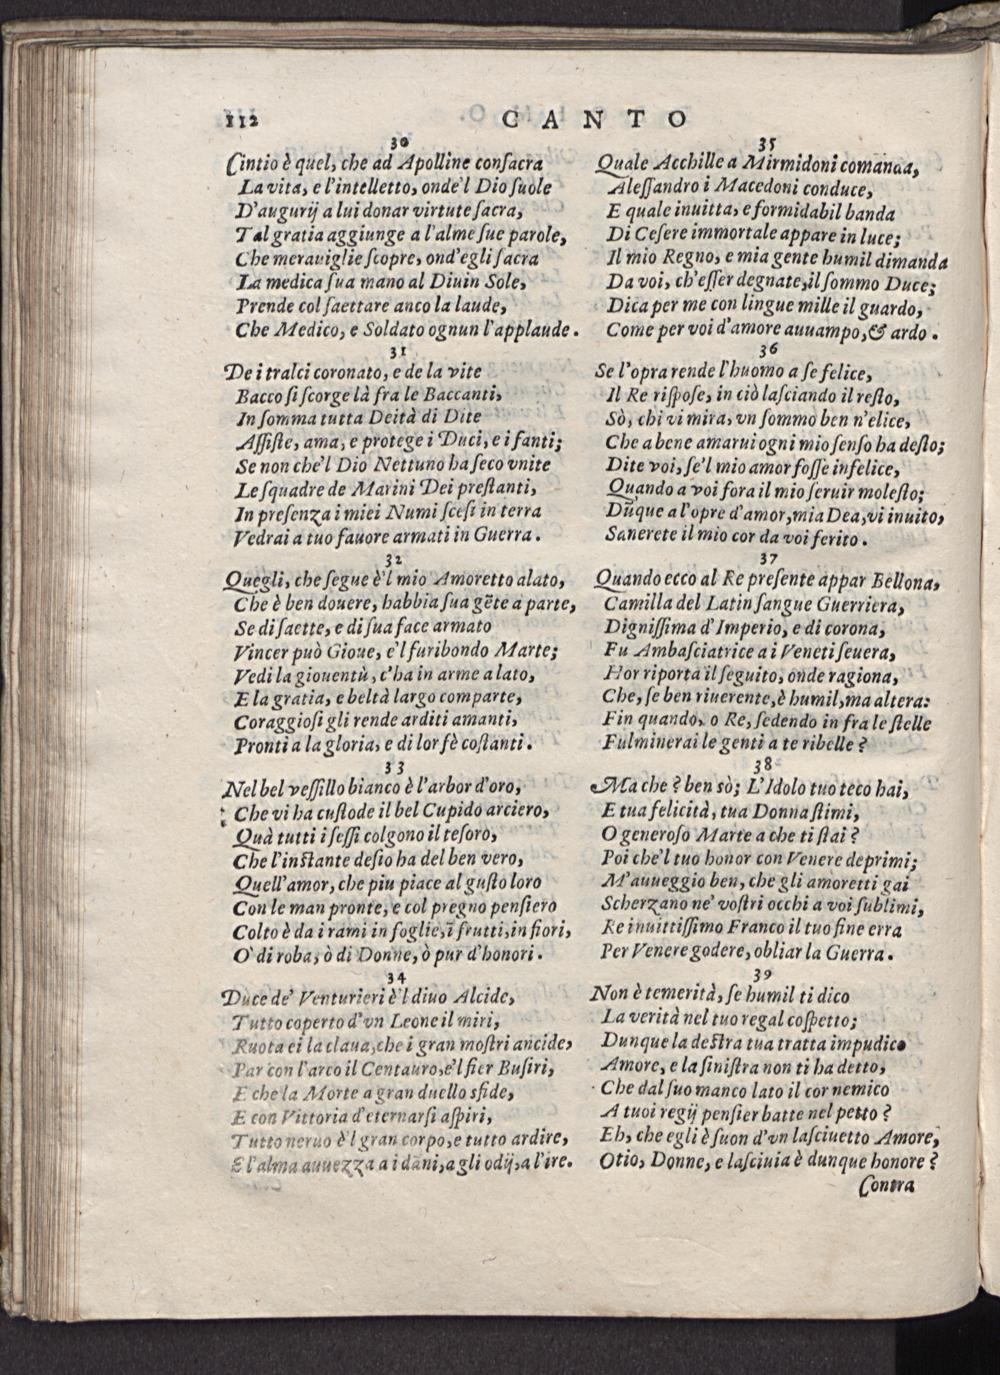 112
CANTO
30
Cintio è quel, che ad Apolline conſacra
La vita, e l'intelletto, onde'l Dio ſuole
D'augurij a lui donar virtute ſacra,
Tal gratia aggiunge a l'alme ſue parole,
Che merauiglie ſcopre, ond'egli ſacra
La medica ſua mano al Diuin Sole,
Prende col ſaettare anco la laude,
Che Medico, e Soldato ognun l'applaude.
31
De i tralci coronato, e de la vite
Bacco ſi ſcorge là fra le Baccanti,
In ſomma tutta Deità di Dite
Aſſiſte, ama, e protege i Duci, e i fanti;
Se non che'l Dio Nettuno ha ſeco vnite
Le ſquadre de Marini Dei preſtanti,
In preſenza i miei Numi ſceſi in terra
Vedrai a tuo fauore armati in Guerra.
32
Quegli, che ſegue è'l mio Amoretto alato,
Che è ben douere, habbia ſua gẽte a parte,
Se di ſaette, e di ſua face armato
Vincer può Gioue, e'l furibondo Marte;
Vedi la giouentù, c'ha in arme a lato,
E la gratia, e beltà largo comparte,
Coraggioſi gli rende arditi amanti,
Pronti a la gloria, e di lor fè coſtanti.
33
Nel bel veſſillo bianco è l'arbor d'oro,
Che vi ha cuſtode il bel Cupido arciero,
Quà tutti i ſeſſi colgono il teſoro,
Che l'inſtante deſio ha del ben vero,
Quell'amor, che piu piace al guſto loro
Con le man pronte, e col pregno penſiero
Colto è da i rami in foglie, ĩ frutti, in fiori,
O' di roba, ò di Donne, ò pur d'honori.
34
Duce de' Venturieri è'l diuo Alcide,
Tutto coperto d'vn Leone il miri,
Ruota ei la claua, che i gran moſtri ancide,
Par con l'arco il Centauro, e'l fier Buſiri,
E che la Morte a gran duello sfide,
E con Vittoria d'eternarſi aſpiri,
Tutto neruo è'l gran corpo, e tutto ardire,
E l'alma auuezza a i dãni, a gli odij, a l'ire.
35
Quale Acchille a Mirmidoni comanda,
Aleſſandro i Macedoni conduce,
E quale inuitta, e formidabil banda
Di Ceſere immortale appare in luce;
Il mio Regno, e mia gente humil dimanda
Da voi, ch'eſſer degnate, il ſommo Duce;
Dica per me con lingue mille il guardo,
Come per voi d'amore auuampo, & ardo.
36
Se l'opra rende l'huomo a ſe felice,
Il Re riſpoſe, in ciò laſciando il reſto,
Sò, chi vi mira, vn ſommo ben n'elice,
Che a bene amarui ogni mio ſenſo ha deſto;
Dite voi, ſe'l mio amor foſſe infelice,
Quando a voi fora il mio ſeruir moleſto;
Dũque a l'opre d'amor, mia Dea, vi inuito,
Sanerete il mio cor da voi ferito.
37
Quando ecco al Re preſente appar Bellona,
Camilla del Latin ſangue Guerriera,
Digniſſima d'Imperio, e di corona,
Fu Ambaſciatrice a i Veneti ſeuera,
Hor riporta il ſeguito, onde ragiona,
Che, ſe ben riuerente, è humil, ma altera:
Fin quando, o Re, ſedendo in fra le ſtelle
Fulminerai le genti a te ribelle?
38
Ma che? ben sò; L'Idolo tuo teco hai,
E tua felicità, tua Donna ſtimi,
O generoſo Marte a che ti ſtai?
Poi che'l tuo honor con Venere deprimi;
M'auueggio ben, che gli amoretti gai
Scherzano ne' voſtri occhi a voi ſublimi,
Re inuittiſſimo Franco il tuo fine erra
Per Venere godere, obliar la Guerra.
39
Non è temerità, ſe humil ti dico
La verità nel tuo regal coſpetto;
Dunque la deſtra tua tratta impudico
Amore, e la ſiniſtra non ti ha detto,
Che dal ſuo manco lato il cor nemico
A tuoi regij penſier batte nel petto?
Eh, che egli è ſuon d'vn laſciuetto Amore,
Otio, Donne, e laſciuia è dunque honore?
Contra